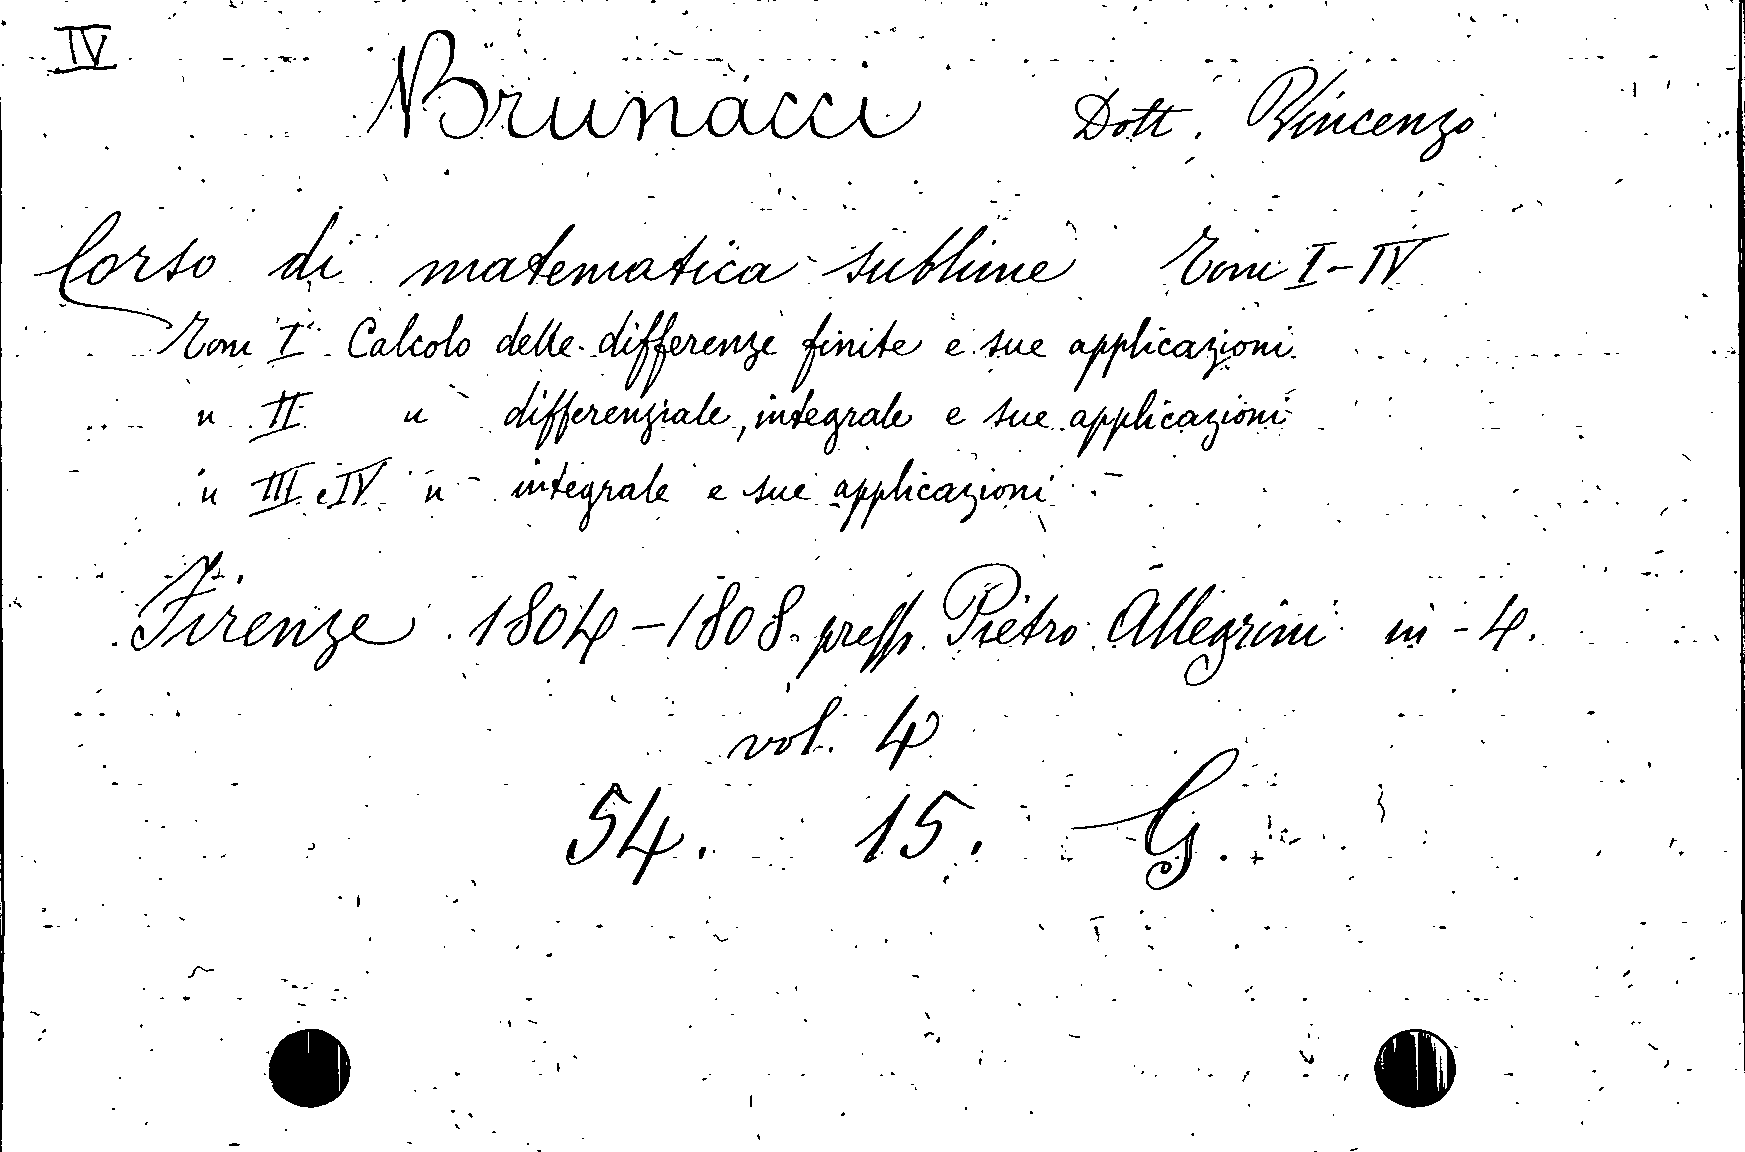 IV
Brunacci Dott. Vincenzo
Corso di matematica sublime Tomi I-IV
Tom I Calcolo delle differenze finite e sue applicazioni
" II " differenziale, integrale e sue applicazioni
" III e IV " integrale e sue applicazioni
Firenze 1804-1808. presso Pietro Allegrini in-4.
vol. 4
54. 15. G.